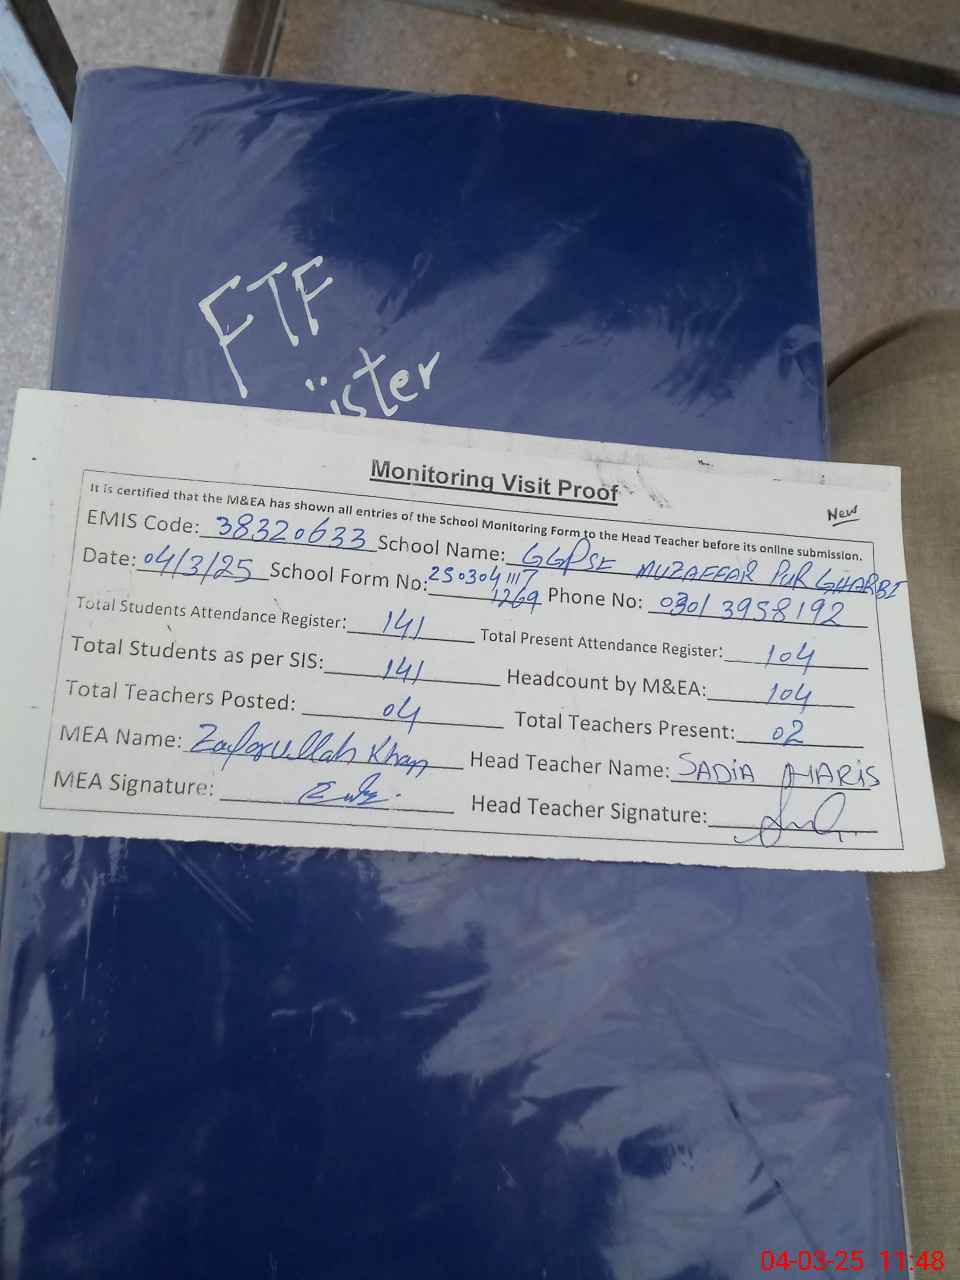 FTF
ister
Monitoring Visit Proof
It is certified that the M&EA has shown all entries of the School Monitoring Form to the Head Teacher before its online submission.
New
EMIS Code: 38320633 School Name: GGPSE MUZAFFAR PUR GHARBI
Date: 04/3/25 School Form No: 250304 1117 1269 Phone No: 0301 3958192
Total Students Attendance Register: 141 Total Present Attendance Register: 104
Total Students as per SIS: 141 Headcount by M&EA: 104
Total Teachers Posted: 04 Total Teachers Present: 02
MEA Name: Zafarullah Khan Head Teacher Name: SADIA HARIS
MEA Signature: Head Teacher Signature:
04-03-25 11:48